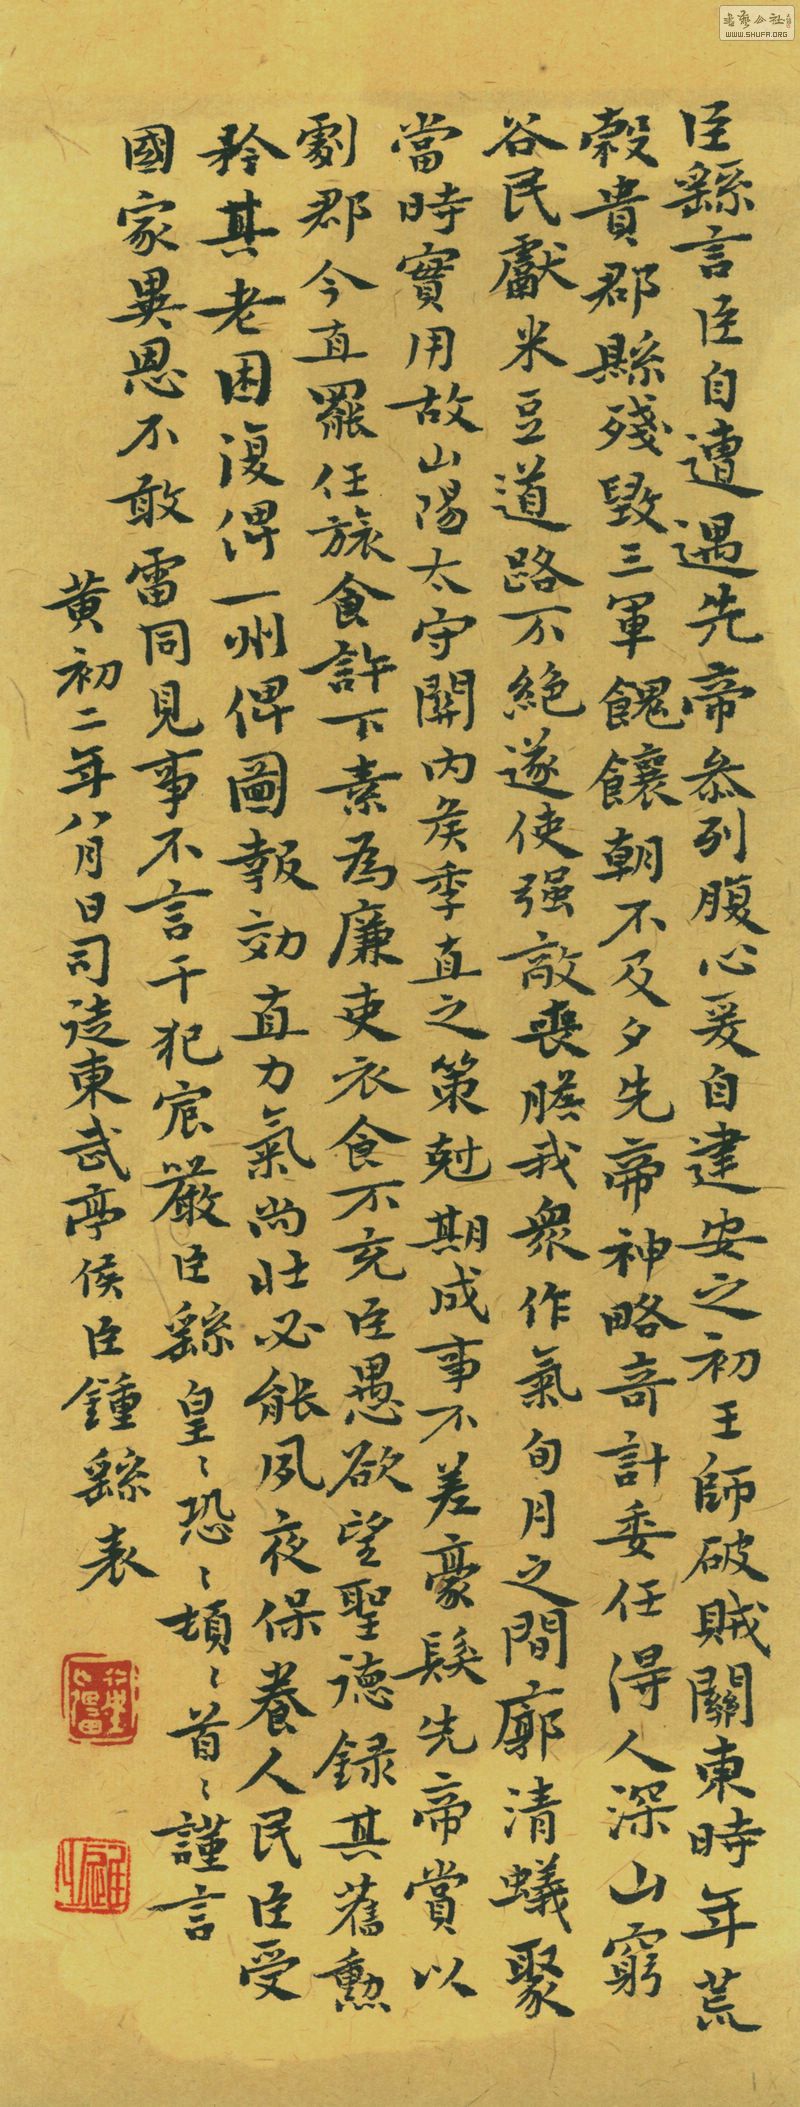 臣繇言臣自遭遇先帝忝列腹心爰自建安之初王師破賊關東時年荒
穀貴郡縣殘毀三軍餽饟朝不及夕先帝神略奇計委任得人深山窮
谷民獻米豆道路不絕遂使强敵喪膽我衆作氣旬月之間廓清蟻聚
當時實用故山陽太守關內侯季直之策尅期成事不差豪髮先帝賞以
劇郡今直罷任旅食許下素為廉吏衣食不充臣愚欲望聖德錄其舊勳
矜其老困復俾一州俾圖報効直力氣尚壯必能夙夜保養人民臣受
國家異恩不敢雷同見事不言干犯宸嚴臣繇皇〻恐〻頓〻首〻謹言
黃初二年八月日司徒東武亭侯臣鍾繇表
WWW.SHUFA.ORG